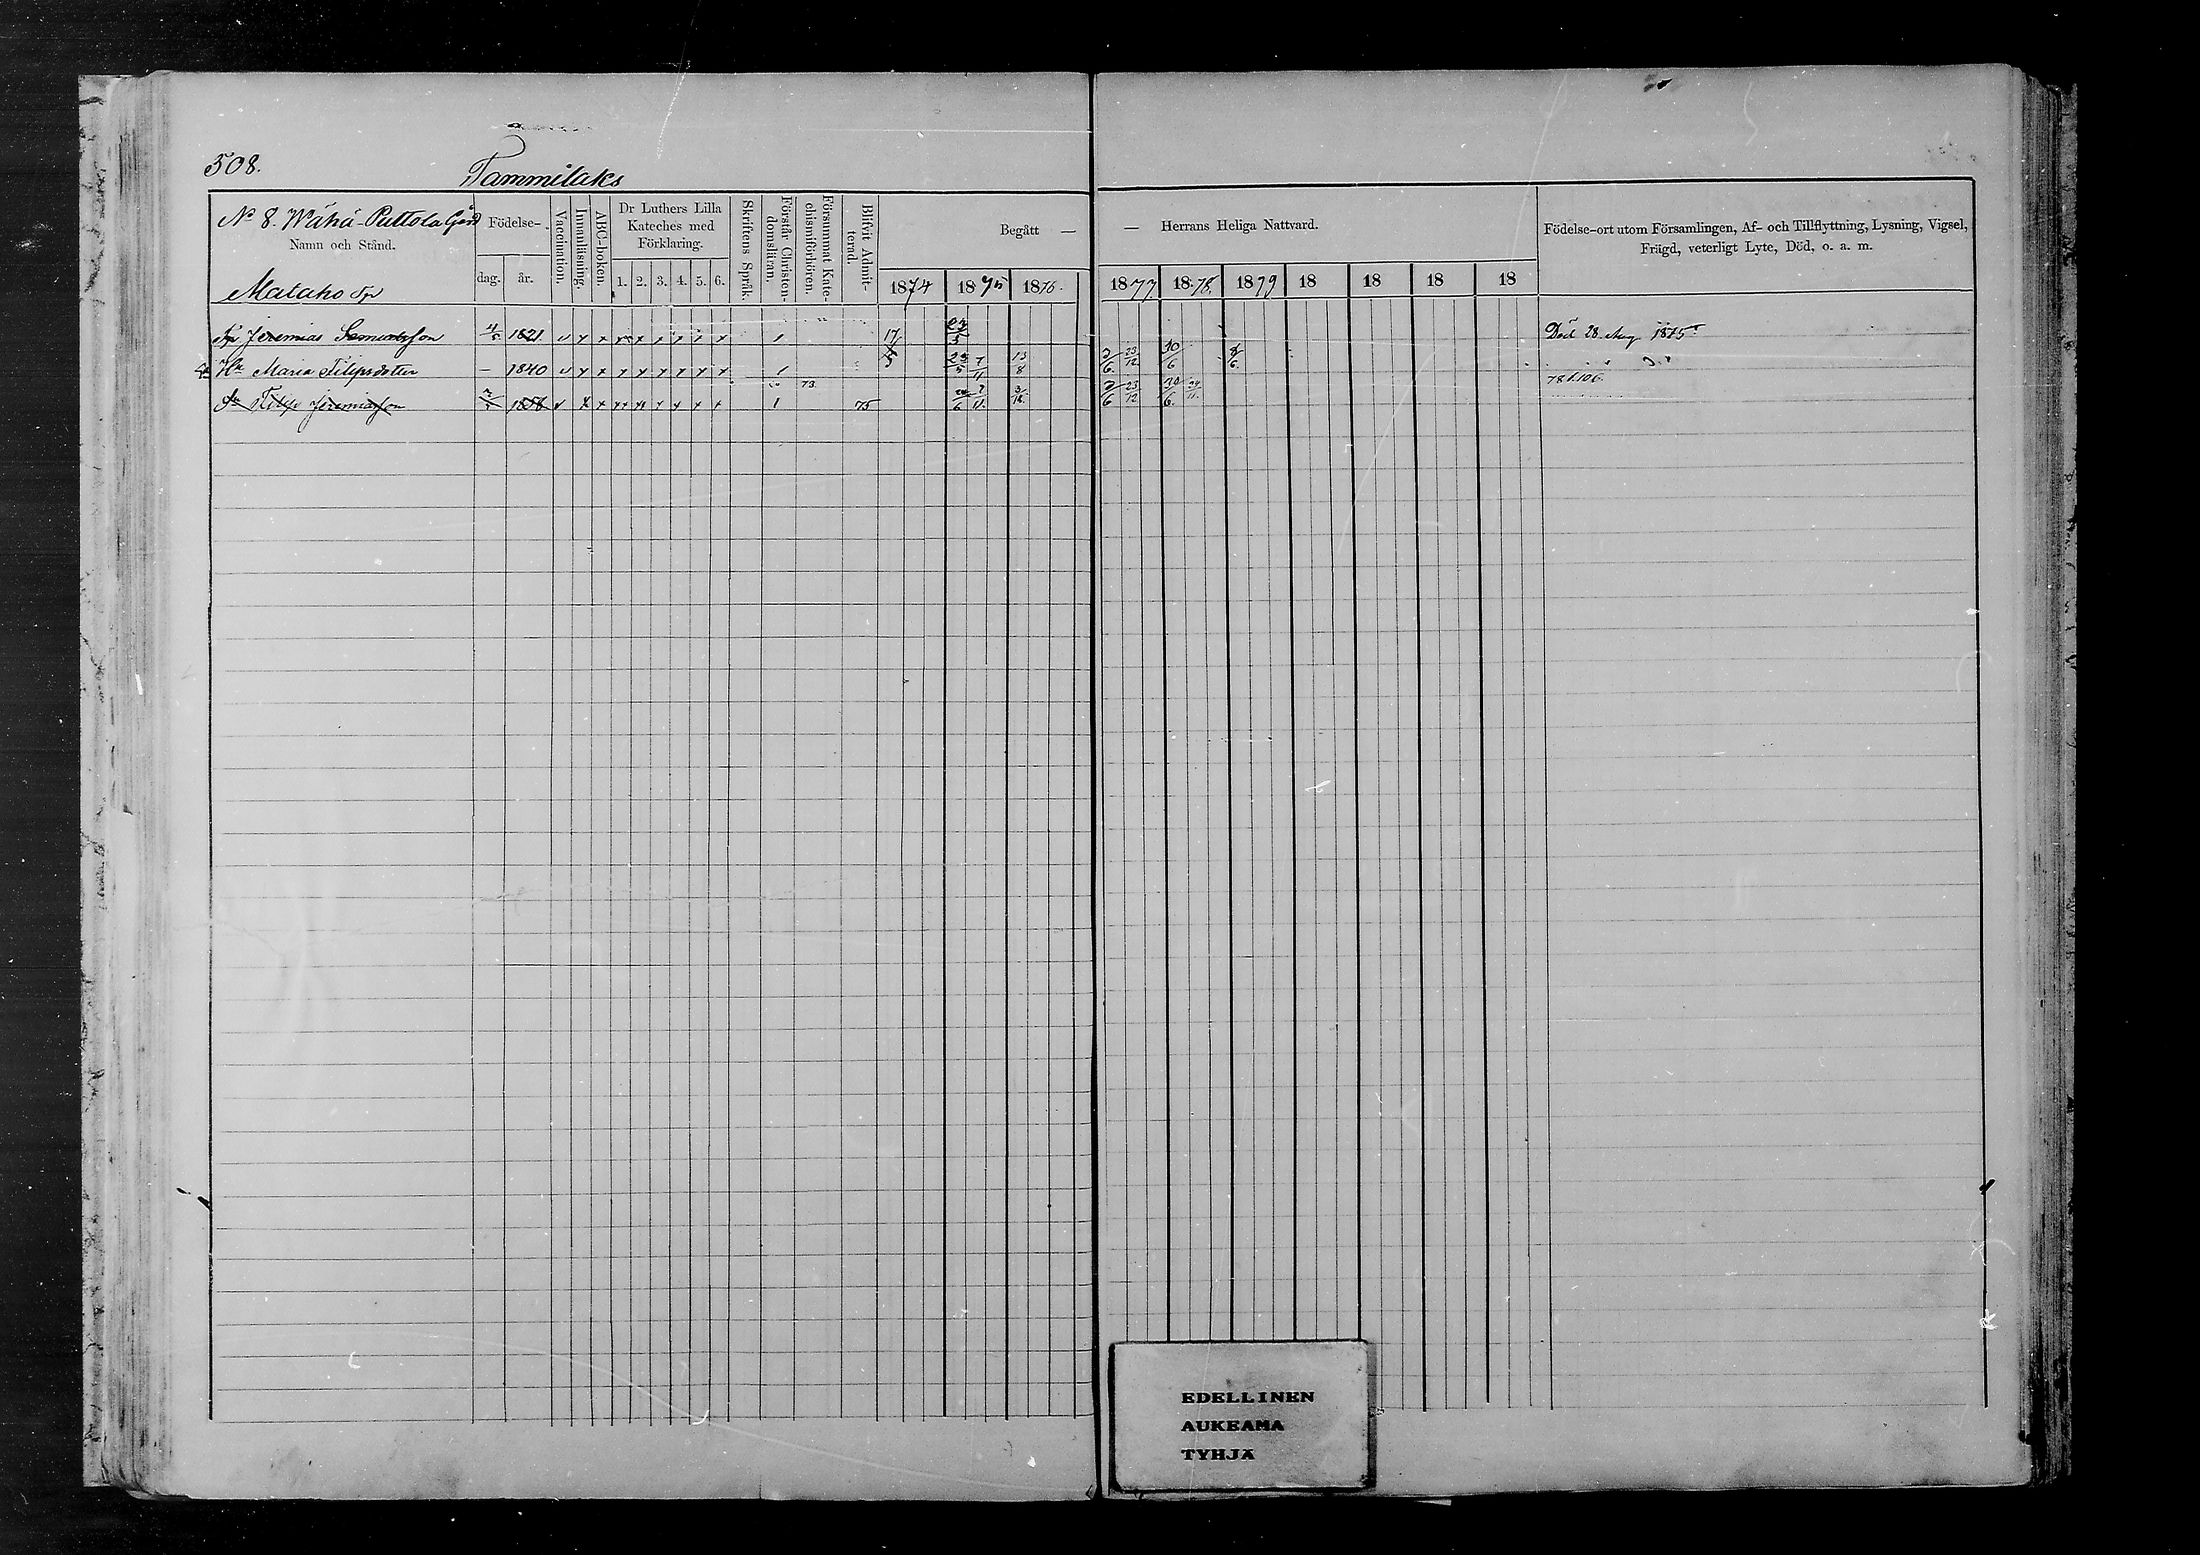 508.
Tammilaks
No 8. Wähä-Puttola Gård
Namn och Stånd.
Matako Trp
Födelse-
dag. år.
Vaccination.
Innanläsning.
ABC-boken
Dr Luthers Lilla
Kateches med
Förklaring.
1. 2. 3. 4. 5. 6.
Skriftens Språk.
Förstår Christen-
domsläran.
Försummat Kate-
chismiförhören.
Blifvit Admit-
terad.
Begått —
1874 1875 1876.
— Herrans Heliga Nattvard.
1877. 1878. 1879 18 18 18 18
Födelse-ort utom Församlingen, Af- och Tillflyttning, Lysning, Vigsel,
Frägd, veterligt Lyte, Död, o. a. m.
Jeremias Samuelsson 4/5 1821 v x x x x x x x x 1 17/5 23/5 Död 28 Aug 1875
Hu Maria Filipsdotter — 1840 v x x x x x x x x 1 23/5 7/11 13/8 3/6 23/12 30/6 8/6
Filip Jeremiasson 1858 v x x x x x x x x 1 73. 75 3/6 23/12 30/6 24/11 78 f. 106.
EDELLINEN
AUKEAMA
TYHJÄ